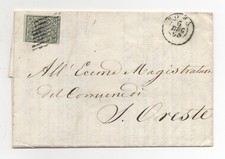 ROMA
5
DEC
All' Eccmo Magistrato
del Comune di
S. Oreste